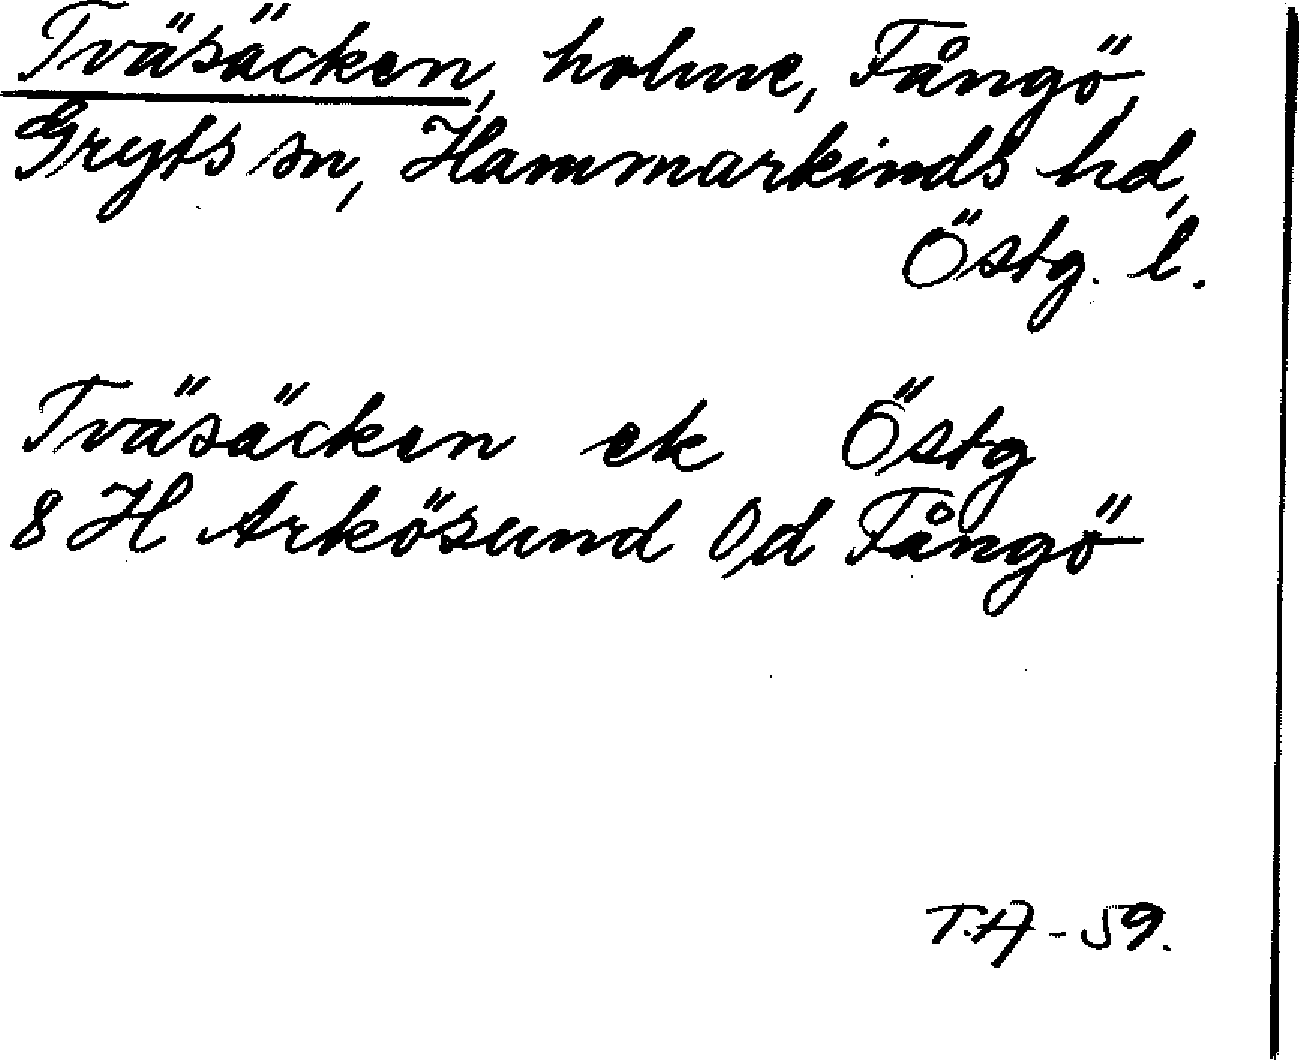 Tväsäcken, holme, Fångö,
Gryts sn, Hammarkinds hd,
Östg. l.
Tväsäcken ek Östg
8 H Arkösund O,d Fångö
T.A - 59.